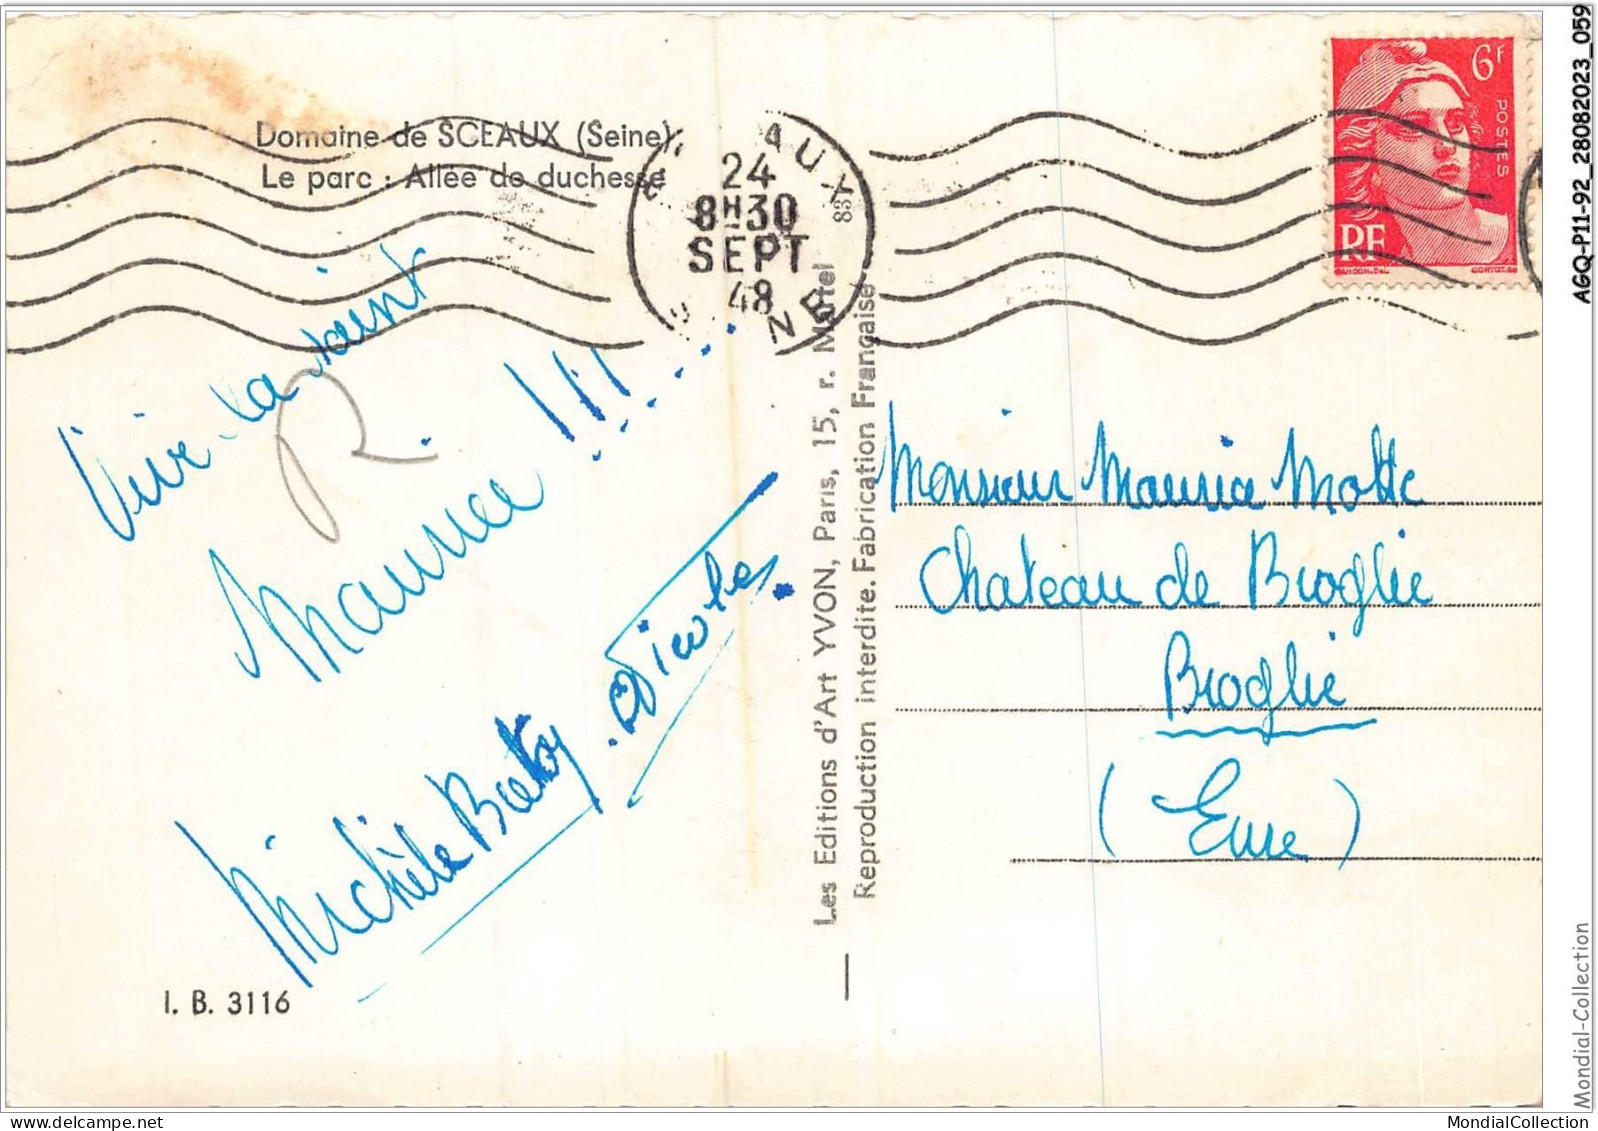 Domaine de SCEAUX (Seine)
Le parc : Allée de duchesse
24
8H30
SEPT
48
6F
POSTES
RF
GANDON.DEL.
CORTOT.SC
Vive la saint
Maurice !!!
Michèle
Nicole
I. B. 3116
Les Editions d'Art YVON, Paris, 15, r. Martel
Reproduction interdite. Fabrication Française
Monsieur Maurice Motte
Chateau de Broglie
Broglie
(Eure)
AGQ-P11-92_28082023_059
Mondial-Collection
MondialCollection